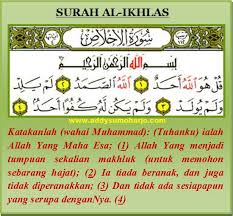 SURAH AL-IKHLAS
سورة الإخلاص
بسم الله الرحمن الرحيم
قل هو الله أحد ۝١ الله الصمد ۝٢ لم يلد
ولم يولد ۝٣ ولم يكن له كفوا أحد ۝٤
www.addysumoharjo.com
Katakanlah (wahai Muhammad): (Tuhanku) ialah
Allah Yang Maha Esa; (1) Allah Yang menjadi
tumpuan sekalian makhluk (untuk memohon
sebarang hajat); (2) Ia tiada beranak, dan juga
tidak diperanakkan; (3) Dan tidak ada sesiapapun
yang serupa denganNya. (4)